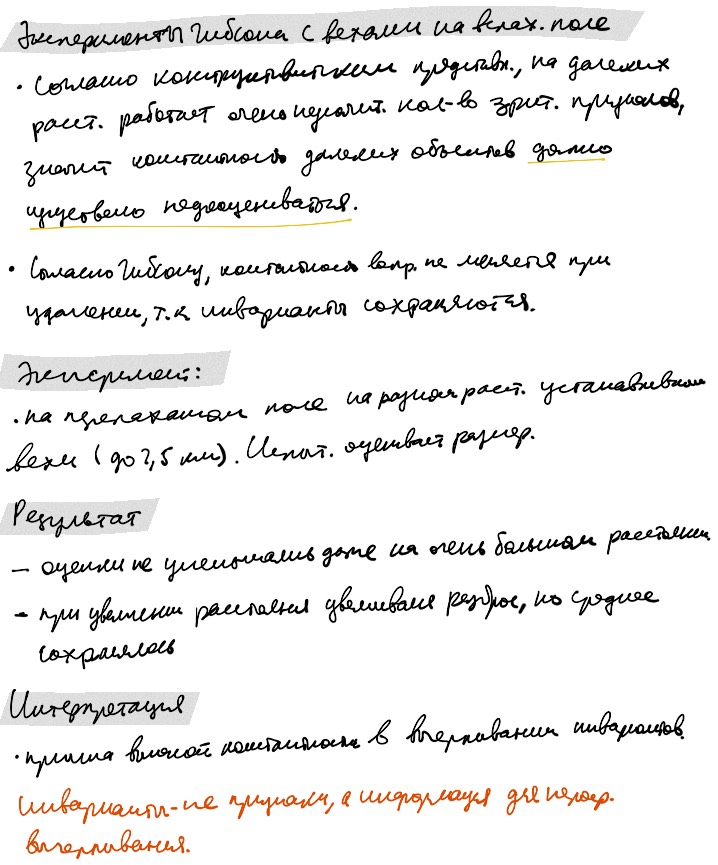 Эксперименты Гибсона с вехами на вспах. поле
• Согласно конструктивистским представл., на далеких
расст. работает очень незначит. кол-во зрит. признаков,
значит константность далеких объектов должно
существенно недооцениваться.
• Согласно Гибсону, константность воспр. не меняется при
удалении, т.к инварианты сохраняются.
Эксперимент:
• на перепаханном поле на разном расст. устанавливали
вехи (до 2,5 км). Испыт. оценивает размер.
Результат
– оценки не уменьшались даже на очень большом расстоянии
– при увеличении расстояния увеличивался разброс, но среднее
сохранялось
Интерпретация
• причина высокой константности в вычерпывании инвариантов.
инварианты - не признаки, а информация для непоср.
вычерпывания.